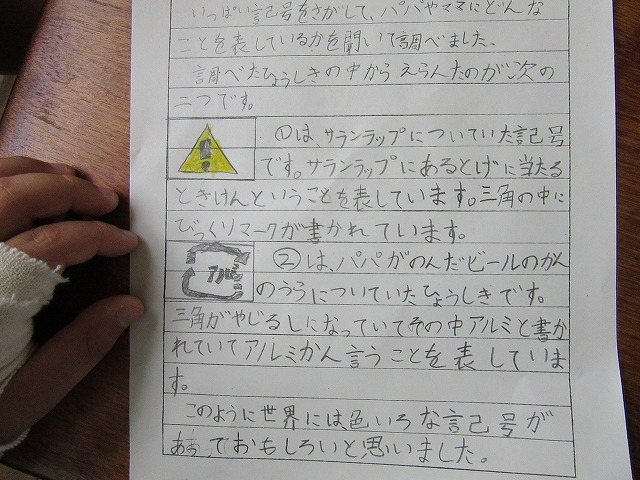 いっぱい記号をさがして、パパやママにどんな
ことを表しているかを聞いて調べました。
調べたひょうしきの中からえらんだのが次の
二つです。
①は、サランラップについていた記号
です。サランラップにあるとげに当たる
ときけんということを表しています。三角の中に
びっくりマークが書かれています。
アルミ
②は、パパがのんだビールのかん
のうらについていたひょうしきです。
三角がやじるしになっていてその中アルミと書か
れていてアルミかん言うことを表していま
す。
このように世界には色いろな記号が
あっておもしろいと思いました。